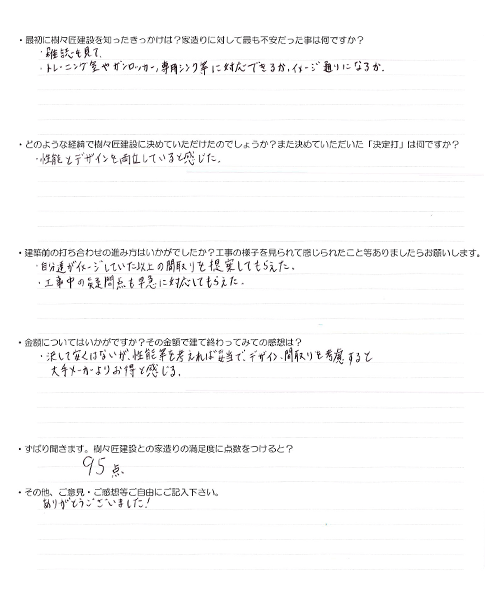 ・最初に樹々匠建設を知ったきっかけは？家造りに対して最も不安だった事は何ですか？
・雑誌を見て
・トレーニング室やガンロッカー，専用シンク等に対応できるか，イメージ通りになるか．
・どのような経緯で樹々匠建設に決めていただけたのでしょうか？また決めていただいた「決定打」は何ですか？
・性能とデザインを両立していると感じた．
・建築前の打ち合わせの進み方はいかがでしたか？工事の様子を見られて感じられたこと等ありましたらお願いします。
・自分達がイメージしていた以上の間取りを提案してもらえた．
・工事中の疑問点も早急に対応してもらえた．
・金額についてはいかがですか？その金額で建て終わってみての感想は？
・決して安くはないが，性能等を考えれば妥当で，デザイン，間取りを考慮すると
大手メーカーよりお得と感じる．
・ずばり聞きます。樹々匠建設との家造りの満足度に点数をつけると？
95点．
・その他、ご意見・ご感想等ご自由にご記入下さい。
ありがとうございました！